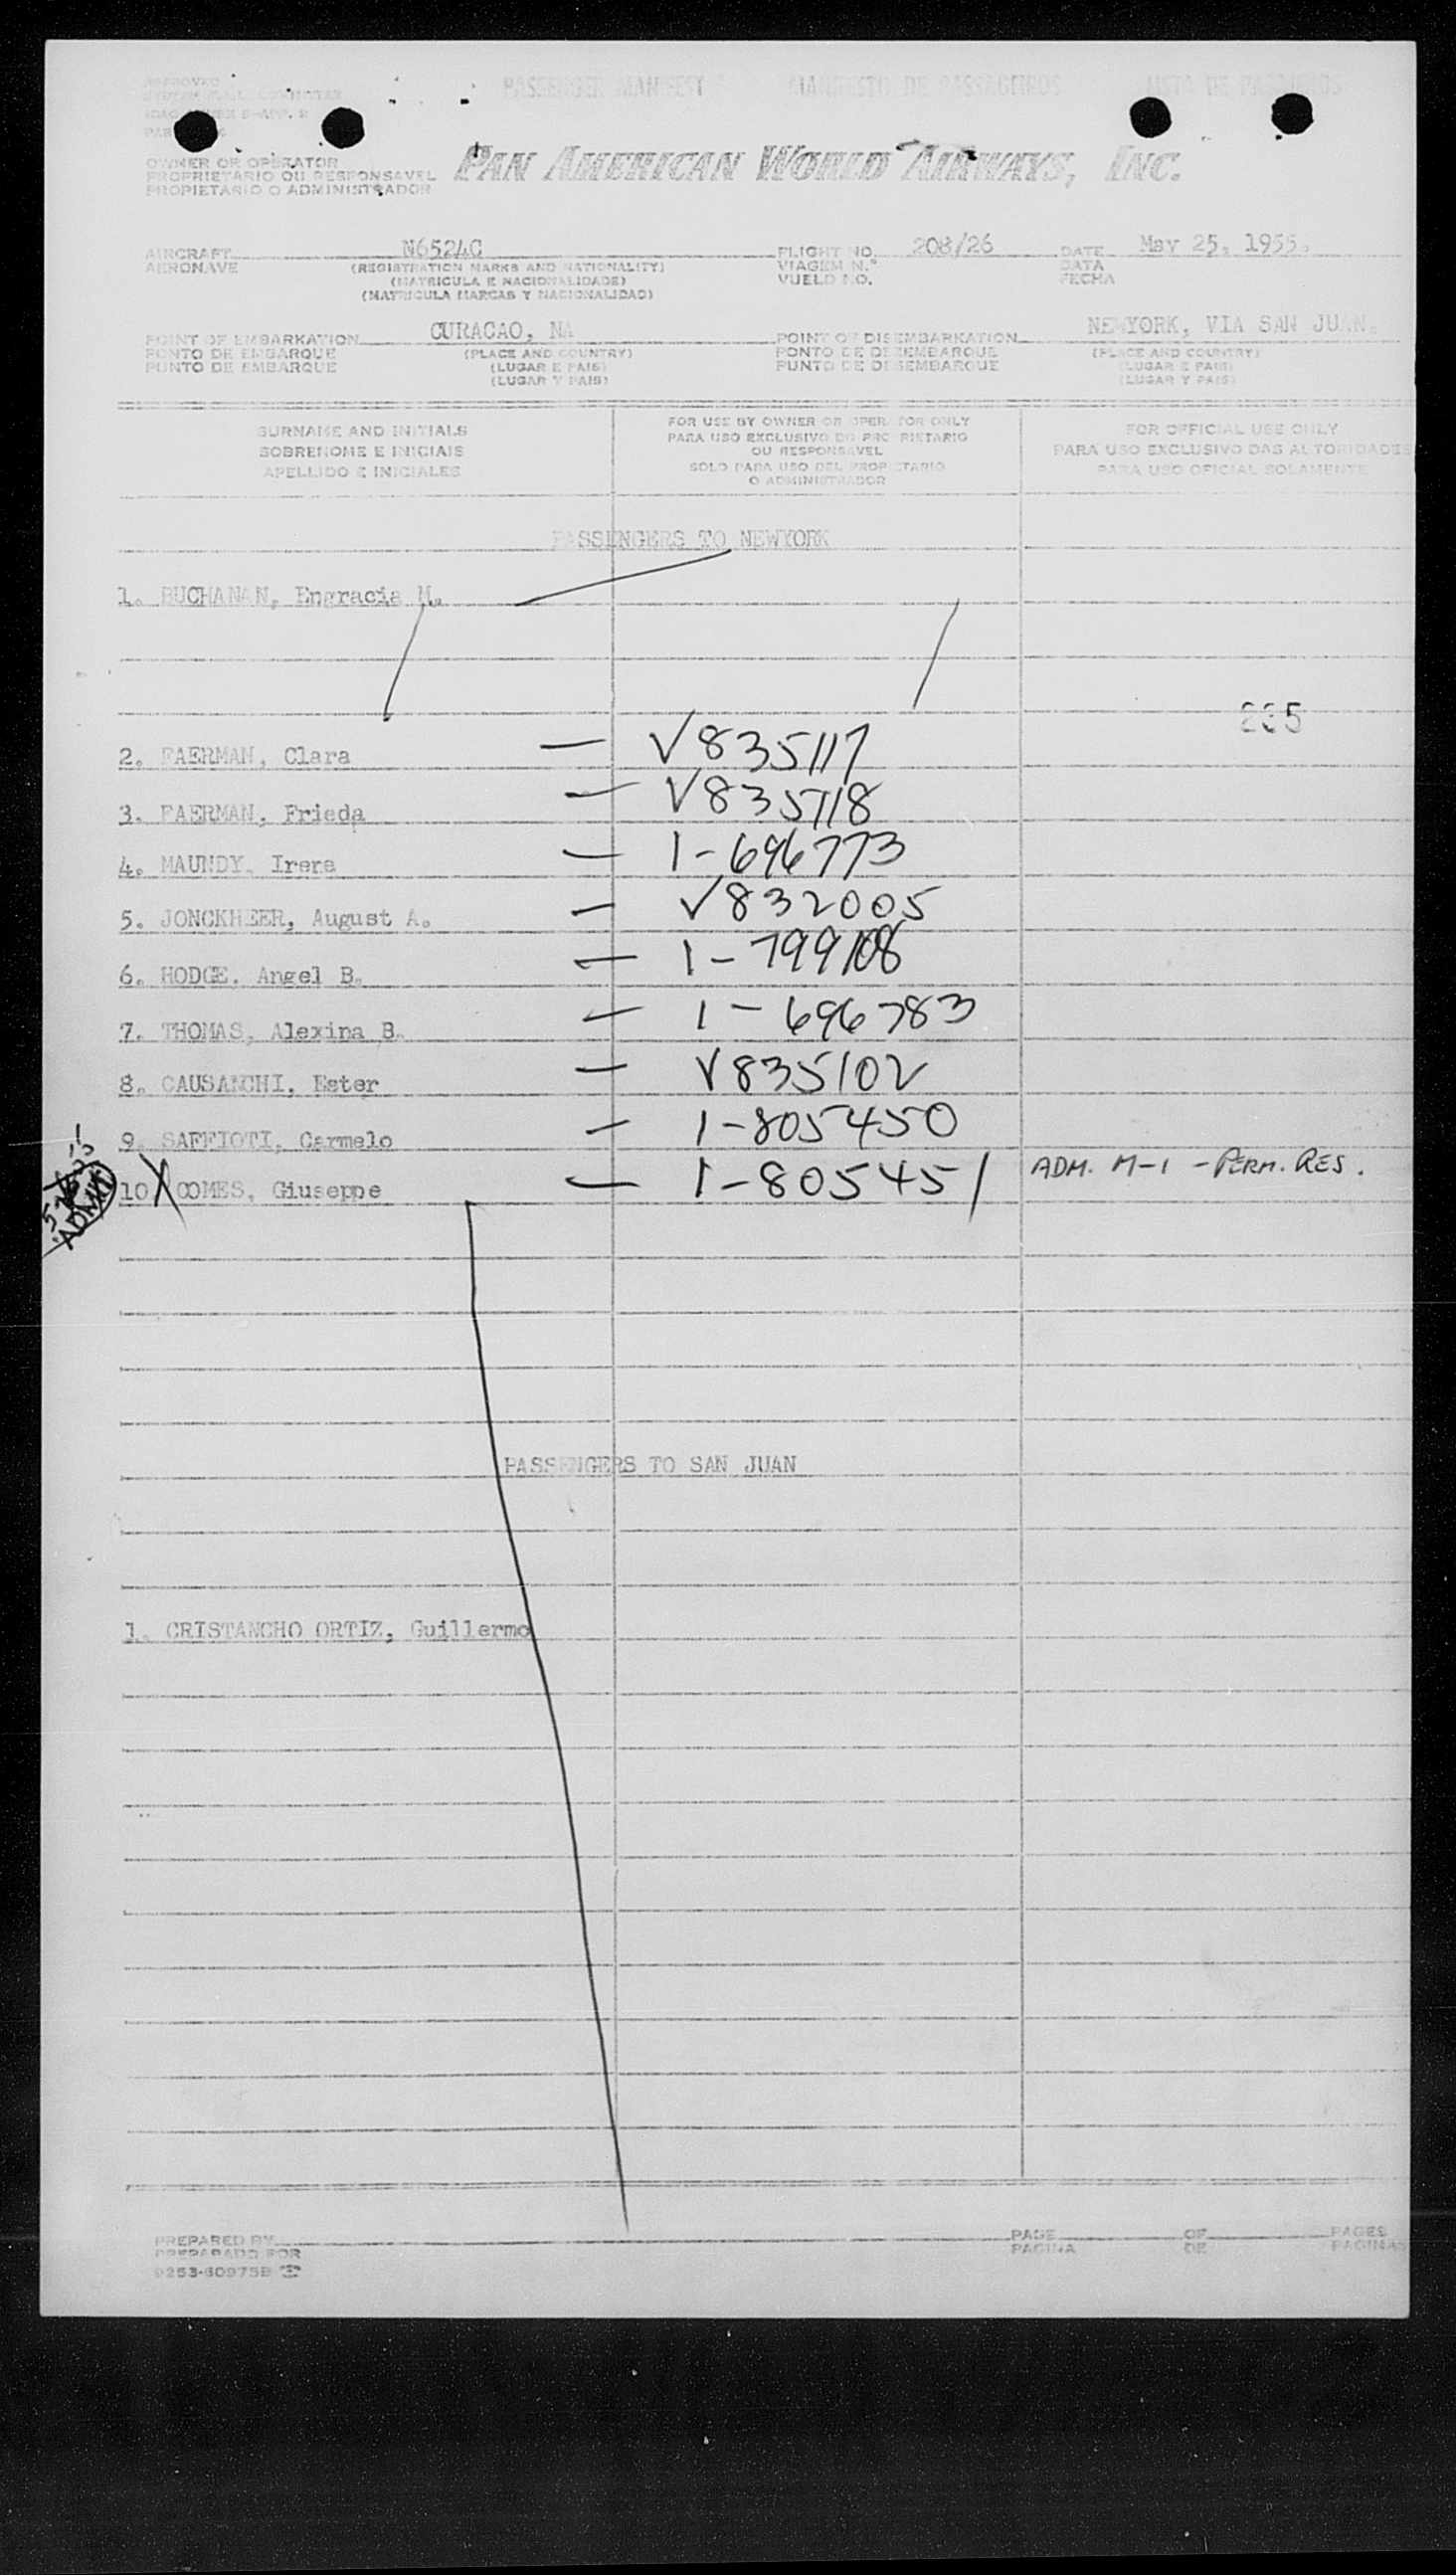 APPROVED
PASSENGER MANIFEST MANIFESTO DE PASSAGEIROS LISTA DE PASAJEROS
OWNER OR OPERATOR
PROPRIETARIO OU RESPONSAVEL
PROPIETARIO O ADMINISTRADOR
PAN AMERICAN WORLD AIRWAYS, INC.
AIRCRAFT N6524C FLIGHT NO. 208/26 DATE May 25, 1955.
AERONAVE (REGISTRATION MARKS AND NATIONALITY) VIAGEM N.º DATA
(MATRICULA E NACIONALIDADE) VUELO NO. FECHA
(MATRICULA MARCAS Y NACIONALIDAD)
POINT OF EMBARKATION CURACAO, NA POINT OF DISEMBARKATION NEWYORK, VIA SAN JUAN.
PONTO DE EMBARQUE (PLACE AND COUNTRY) PONTO DE DESEMBARQUE (PLACE AND COUNTRY)
PUNTO DE EMBARQUE (LUGAR E PAIS) PUNTO DE DESEMBARQUE (LUGAR E PAIS)
(LUGAR Y PAIS) (LUGAR Y PAIS)
SURNAME AND INITIALS
SOBRENOME E INICIAIS
APELLIDO E INICIALES
FOR USE BY OWNER OR OPERATOR ONLY
PARA USO EXCLUSIVO DO PROPRIETARIO
OU RESPONSAVEL
SOLO PARA USO DEL PROPIETARIO
O ADMINISTRADOR
FOR OFFICIAL USE ONLY
PARA USO EXCLUSIVO DAS AUTORIDADES
PARA USO OFICIAL SOLAMENTE
PASSENGERS TO NEWYORK
1. BUCHANAN, Engracia M.
235
2. FAERMAN, Clara — √835117
3. FAERMAN, Frieda — √835118
4. MAUNDY, Irene — 1-696773
5. JONCKHEER, August A. — √832005
6. HODGE, Angel B. — 1-799108
7. THOMAS, Alexina B. — 1-696783
8. CAUSANCHI, Ester — √835102
9. SAFFIOTI, Carmelo — 1-805450
10 X COMES, Giuseppe — 1-805451 ADM. M-1 - PERM. RES.
PASSENGERS TO SAN JUAN
1. CRISTANCHO ORTIZ, Guillermo
PREPARED BY PAGE OF PAGES
PREPARADO POR PAGINA DE PAGINAS
9253-60975B